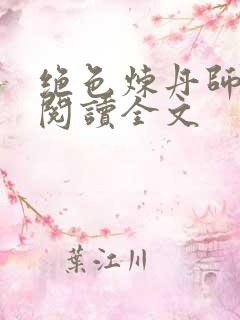 绝色炼丹師
閱讀全文
葉江川